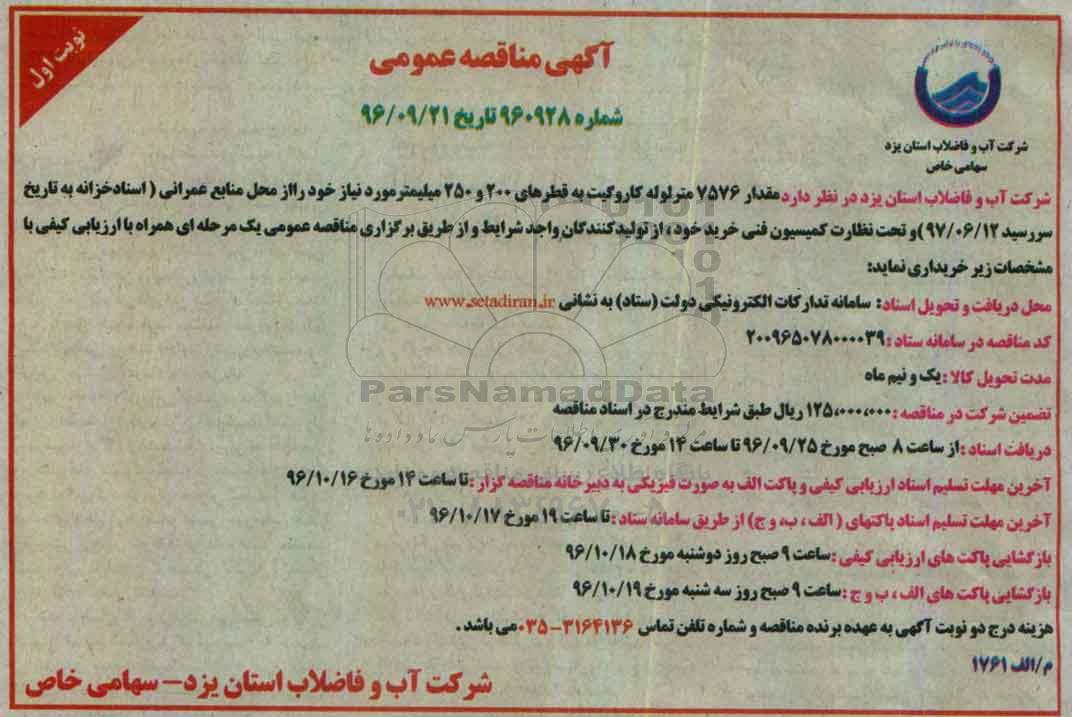 نوبت اول
آگهی مناقصه عمومی
شماره ۹۶۰۹۲۸ تاریخ ۹۶/۰۹/۲۱
شرکت آب و فاضلاب استان یزد
سهامی خاص
شرکت آب و فاضلاب استان یزد در نظر دارد مقدار ۷۵۷۶ متر لوله کاروگیت به قطرهای ۲۰۰ و ۲۵۰ میلیمتر مورد نیاز خود رااز محل منابع عمرانی ( اسنادخزانه به تاریخ
سررسید ۹۷/۰۶/۱۲ )و تحت نظارت کمیسیون فنی خرید خود ، از تولیدکنندگان واجد شرایط و از طریق برگزاری مناقصه عمومی یک مرحله ای همراه با ارزیابی کیفی با
مشخصات زیر خریداری نماید:
محل دریافت و تحویل اسناد: سامانه تدارکات الکترونیکی دولت (ستاد) به نشانی www.setadiran.ir
کد مناقصه در سامانه ستاد :۲۰۰۹۶۵۰۷۸۰۰۰۰۳۹
مدت تحویل کالا :یک و نیم ماه
ParsNamadData
تضمین شرکت در مناقصه :۱۲۵،۰۰۰،۰۰۰ ریال طبق شرایط مندرج در اسناد مناقصه
دریافت اسناد :از ساعت ۸ صبح مورخ ۹۶/۰۹/۲۵ تا ساعت ۱۴ مورخ ۹۶/۰۹/۳۰
آخرین مهلت تسلیم اسناد ارزیابی کیفی و پاکت الف به صورت فیزیکی به دبیرخانه مناقصه گزار :تا ساعت ۱۴ مورخ ۹۶/۱۰/۱۶
آخرین مهلت تسلیم اسناد پاکتهای ( الف ، ب، و ج) از طریق سامانه ستاد :تا ساعت ۱۹ مورخ ۹۶/۱۰/۱۷
بازگشایی پاکت های ارزیابی کیفی :ساعت ۹ صبح روز دوشنبه مورخ ۹۶/۱۰/۱۸
بازگشایی پاکت های الف ، ب و ج :ساعت ۹ صبح روز سه شنبه مورخ ۹۶/۱۰/۱۹
هزینه درج دو نوبت آگهی به عهده برنده مناقصه و شماره تلفن تماس ۳۱۶۴۱۳۶-۰۳۵ می باشد .
م/الف ۱۷۶۱
شرکت آب و فاضلاب استان یزد- سهامی خاص